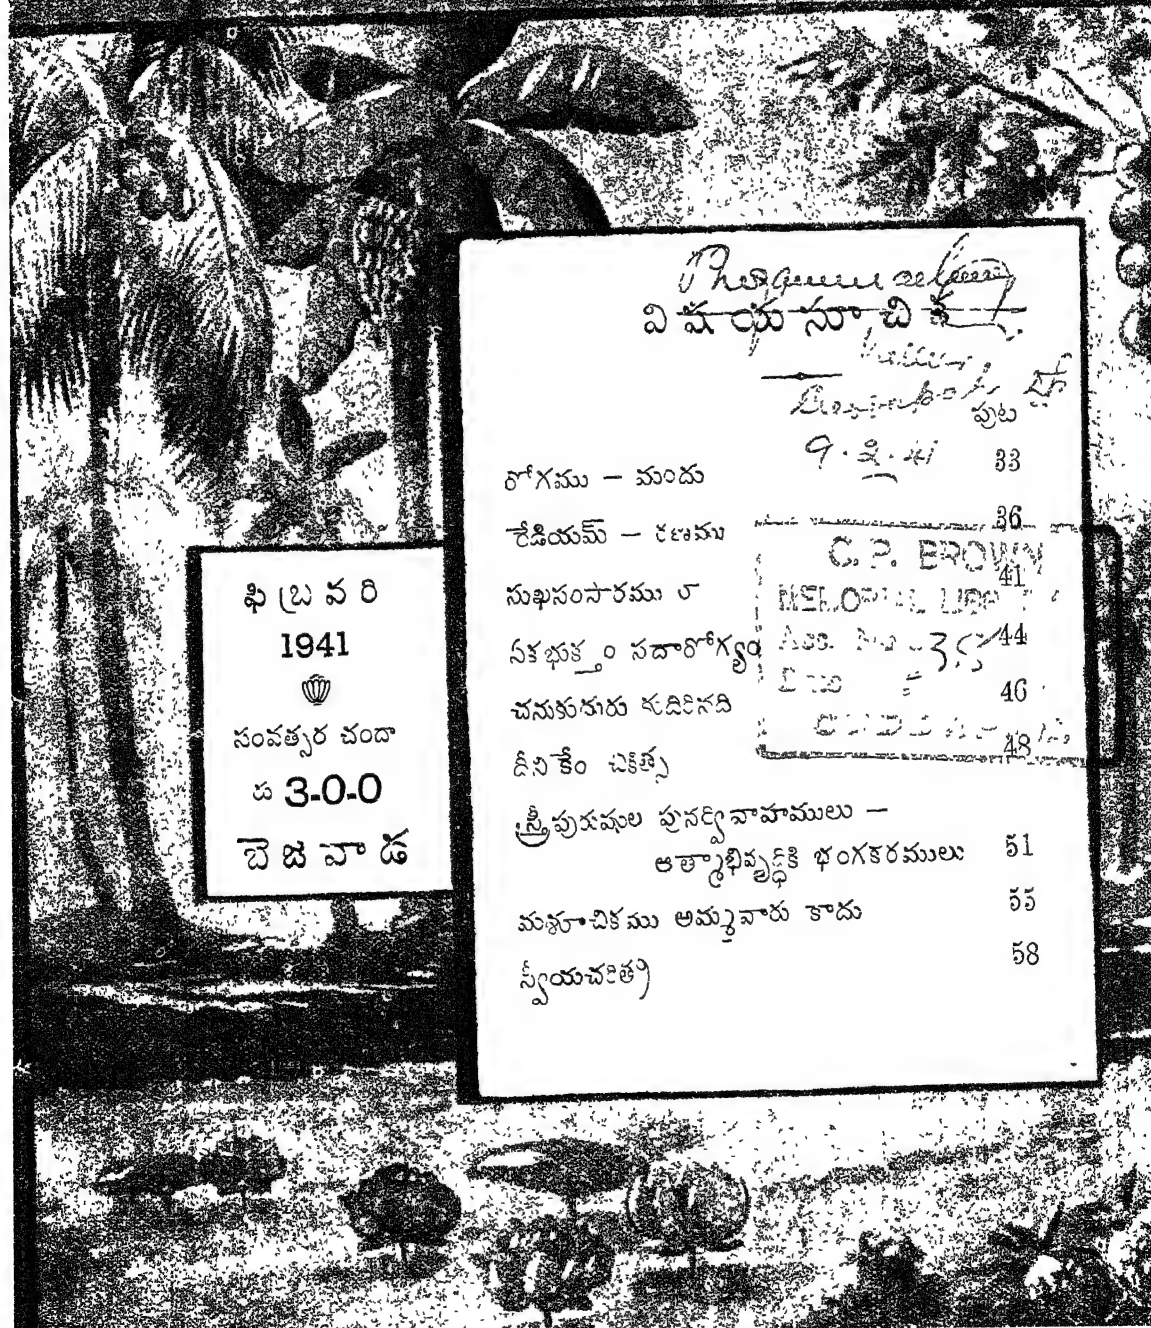 ఫిబ్రవరి
1941
సంవత్సర చందా
రు 3-0-0
బెజవాడ
విషయసూచిక
పుట
రోగము — మందు 33
రేడియమ్ — కణము 36
సుఖసంసారము 41
ఏకభుక్తం సదారోగ్యం 44
చనుకుదురు కుదిరినది 46
దీనికేం చికిత్స 48
స్త్రీపురుషుల పునర్వివాహములు —
ఆత్మాభివృద్ధికి భంగకరములు 51
మశూచికము అమ్మవారు కాదు 55
స్వీయచరిత్ర 58
C. P. BROWN
MEMORIAL